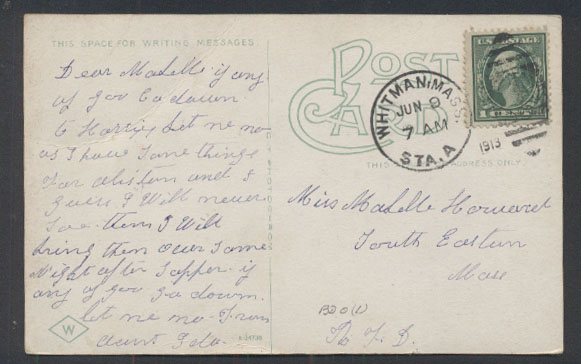 THIS SPACE FOR WRITING MESSAGES
Dear Madelle if any
of you Go down
to Harries Let me no
as I have Some things
For and I
guess I Will never
See them I Will
bring them over Some
Night after Supper if
any of you go down.
let me no From
aunt Ida.
W
POST CARD
THIS ADDRESS ONLY
WHITMAN, MASS.
JUN 9
7 AM
1913
STA. A
U.S. POSTAGE
1 CENT 1
Miss Madelle Howard
South Eastern
Mass
R F D.